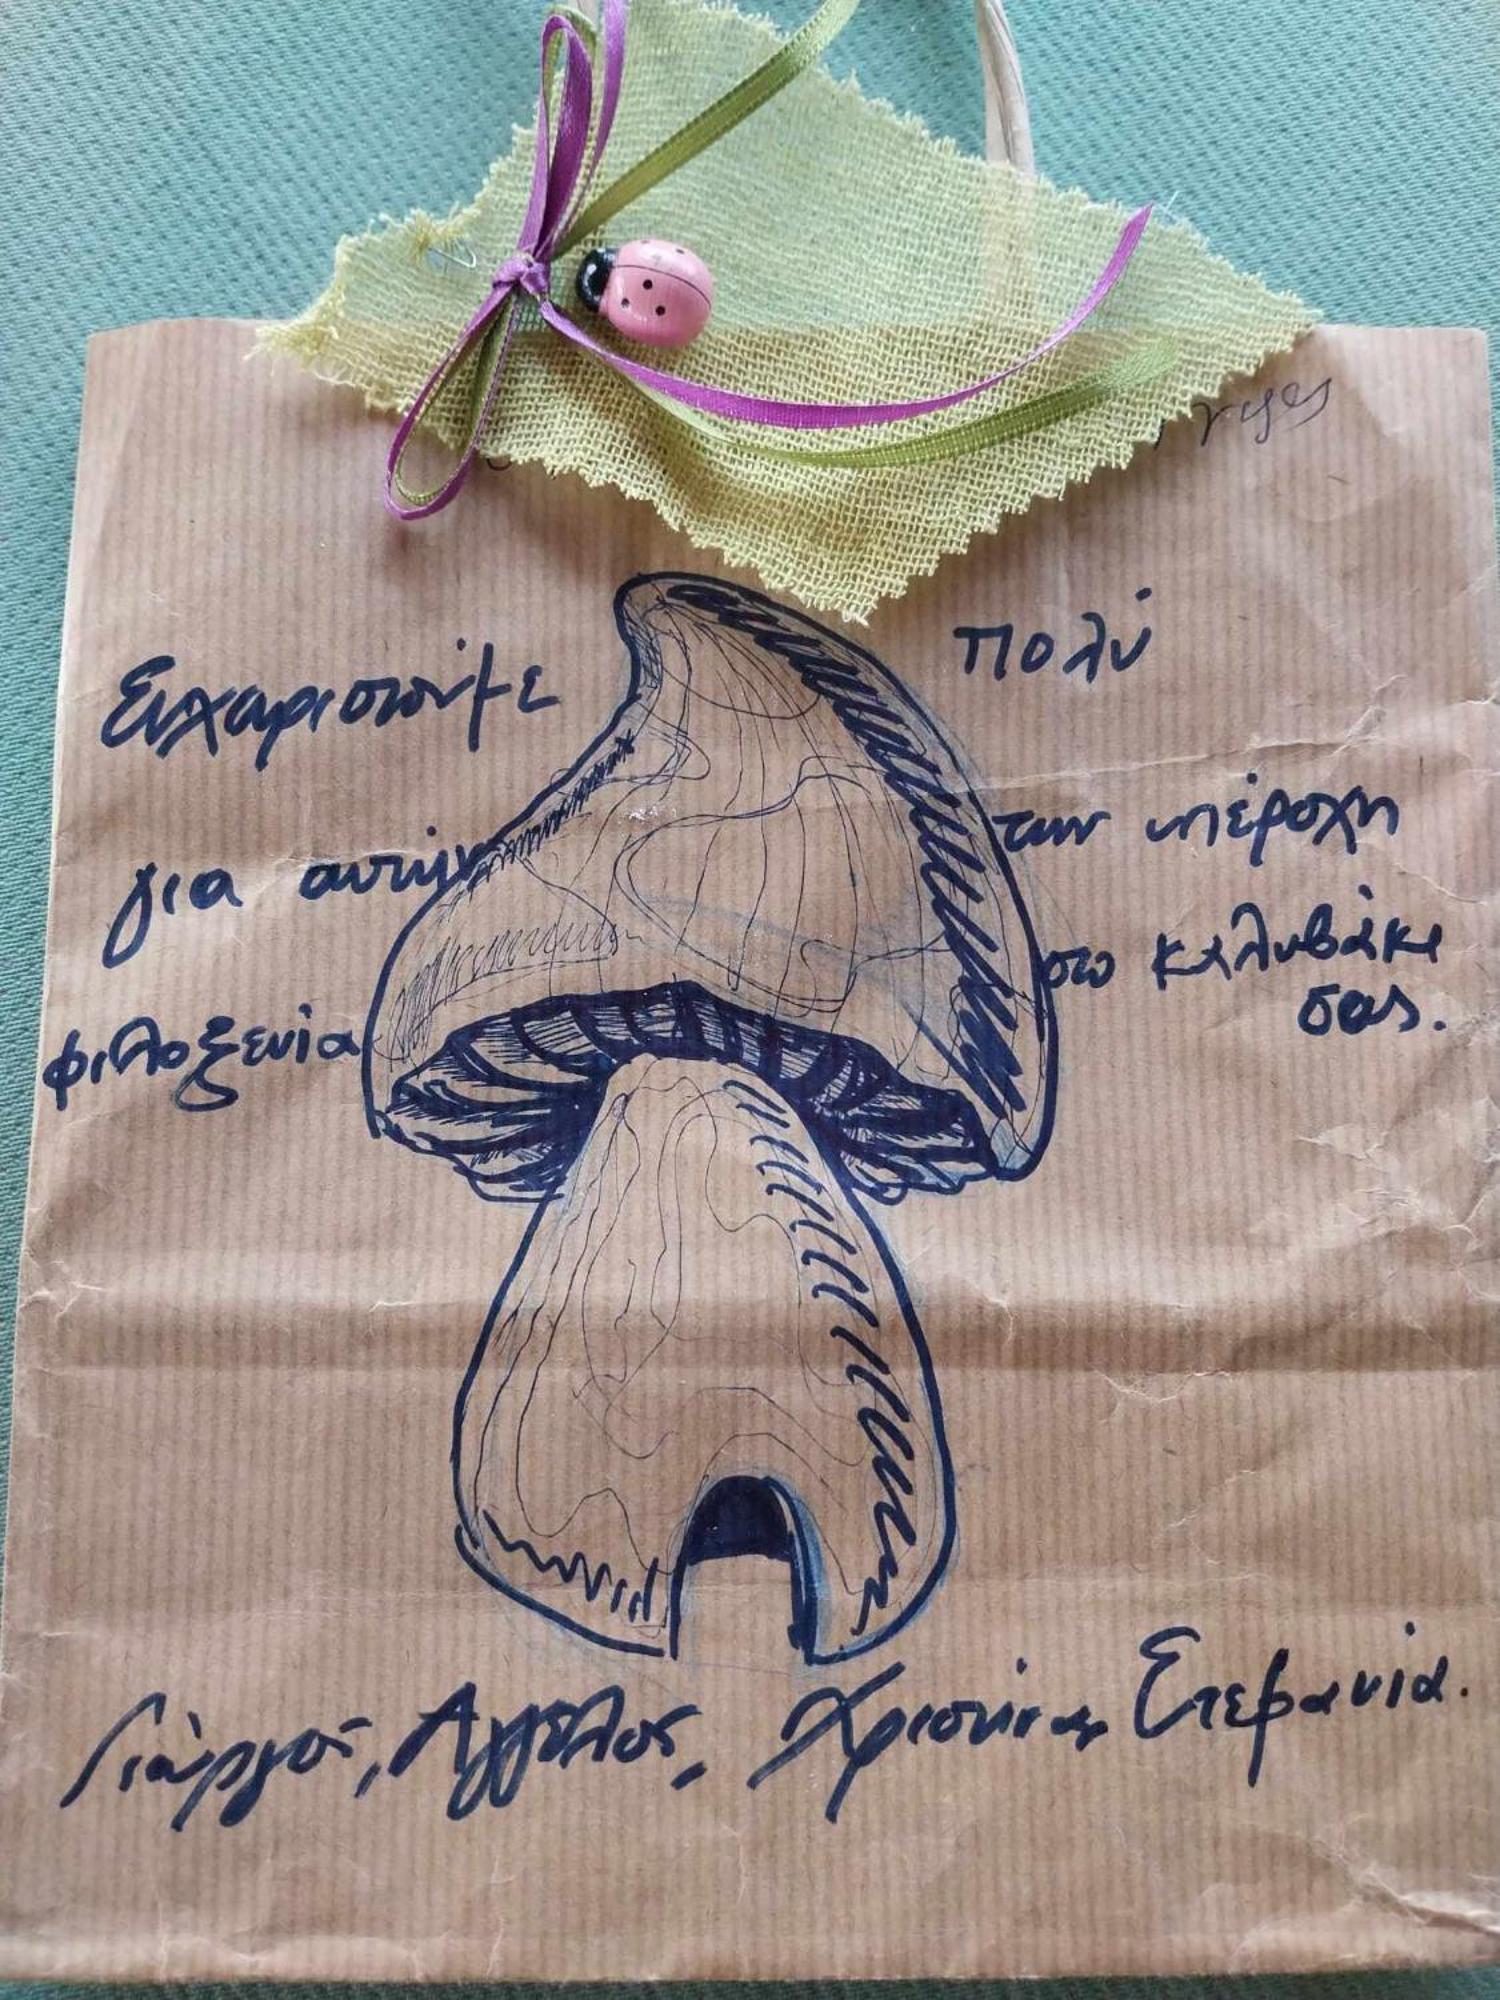 Ευχαριστούμε πολύ
για αυτήν την υπέροχη
φιλοξενία στο καλυβάκι
σας.
Γιώργος, Άγγελος, Χριστίνα, Στεφανία.